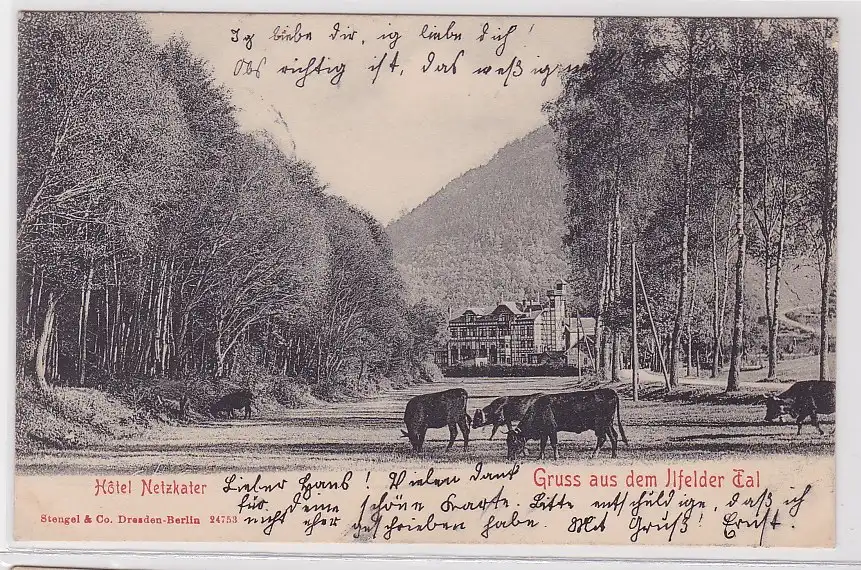 Ig liebe dir, ig liebe dich!
Obs richtig ist, das weß ig
Hôtel Netzkater
Lieber Hans! Vielen Dank
Gruss aus dem Ilfelder Tal
für deine schöne Karte. Bitte entschuldige, daß ich
Stengel & Co. Dresden-Berlin 24753
nicht eher geschrieben habe. Mit Gruß! Ernst.